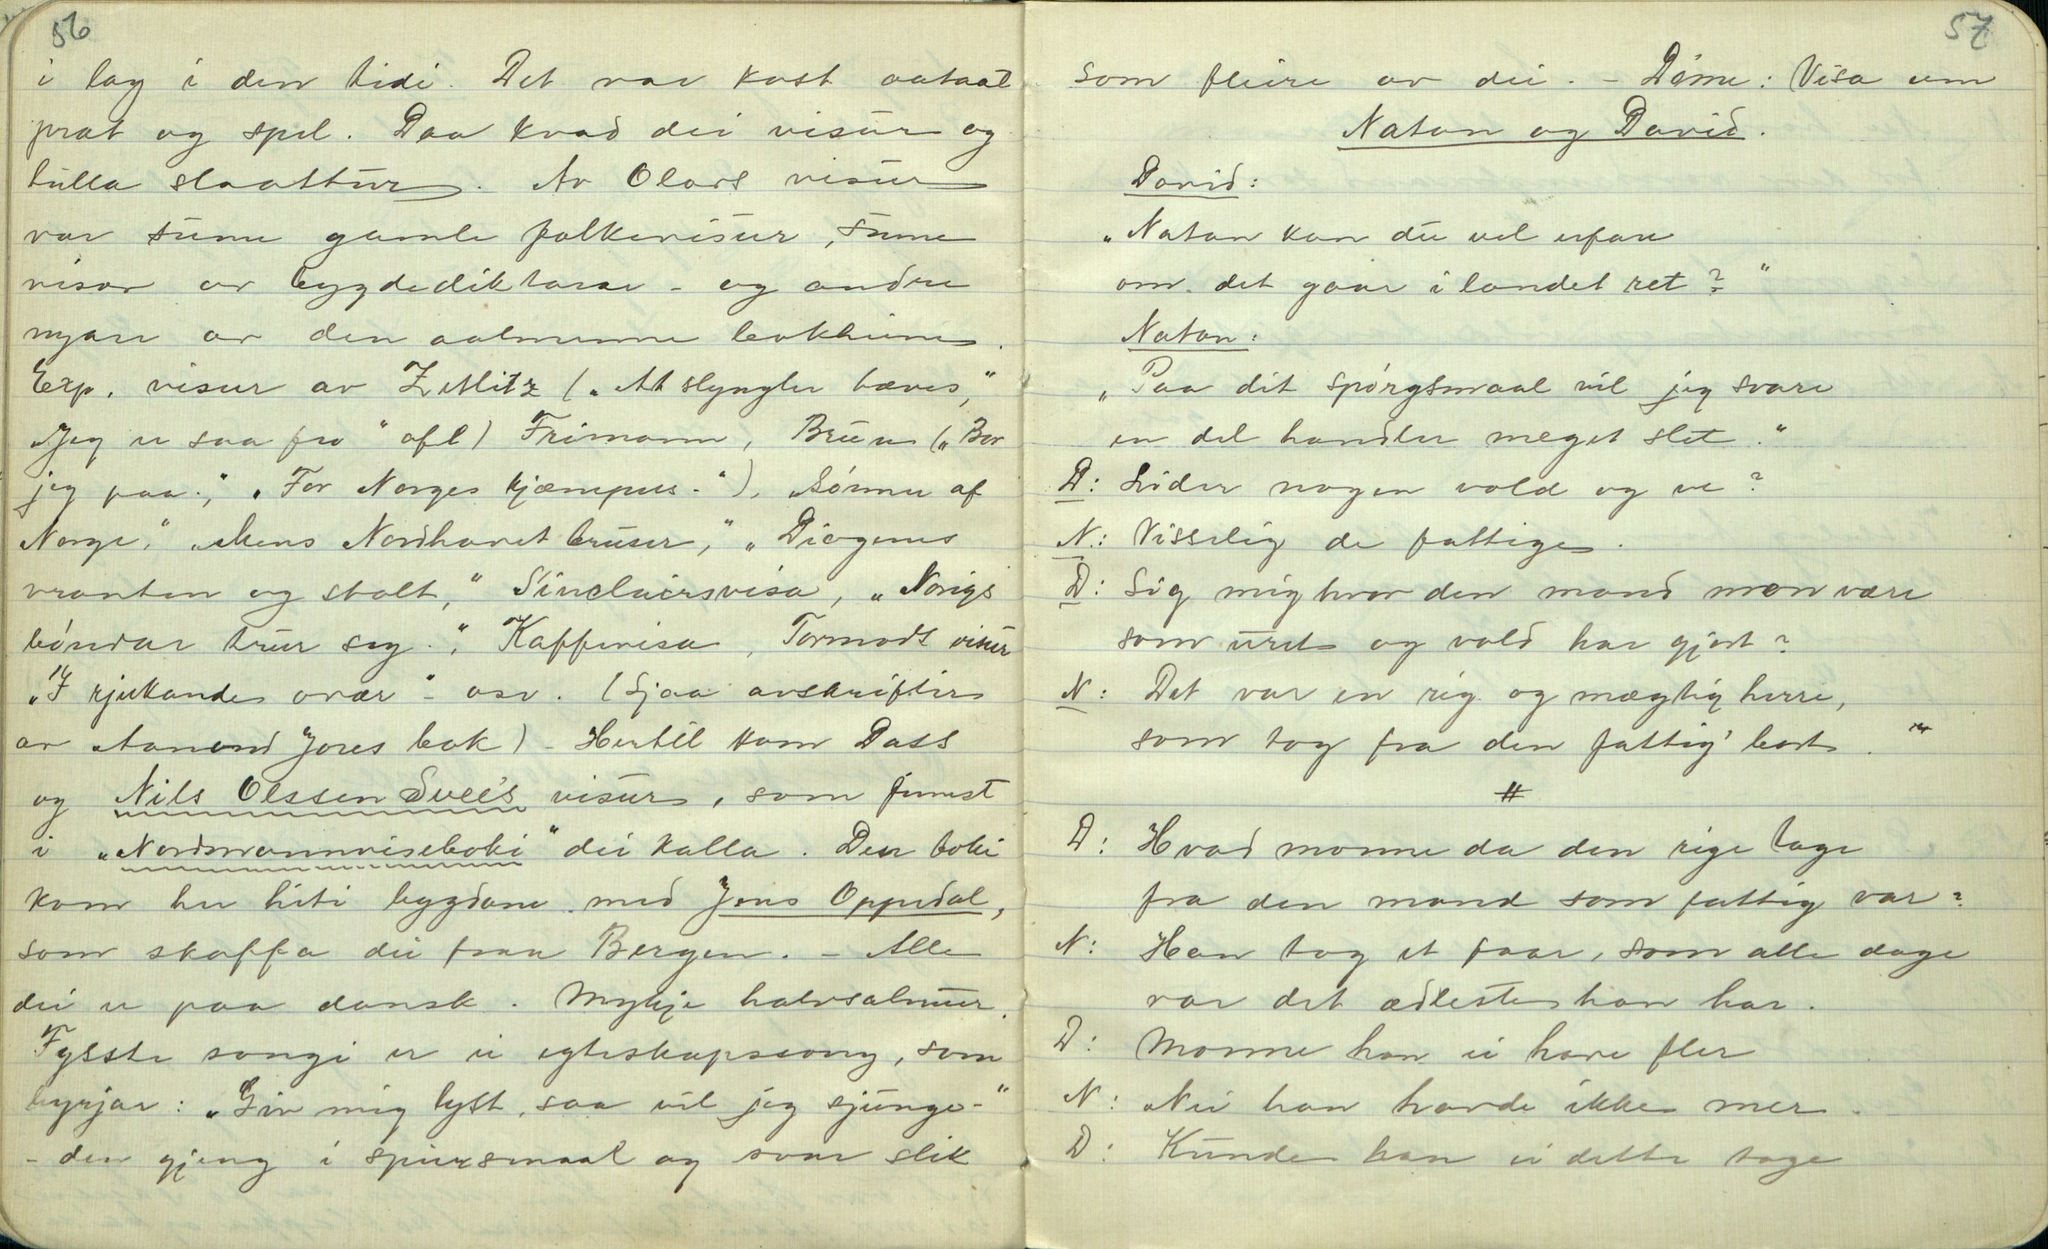 56
i lag i den tidi. Det var kast aataat
prat og spel. Daa kvad dei visur og
tulla slaattur. Av Olavs visur
var sume gamle folkevisur, sume
visor av bygdediktarar - og andre
nyare av den aalmenne boktume.
Exp. visur av Zetlitz („At slyngler hæves,"
„Jeg er saa fro" ofl) Frimann, Bruun („Bor
jeg paa.", „For Norges kjæmpers -"), Sønner af
Norge," „Mens Nordhavet bruser," „Diogenes
vranten og stolt," Sinclairsvisa, „Norigs
bóndar trur seg.", Kaffevisa, Tormods visur
„I rjukande ovær" - osv. (Sjaa avskrifter
av Aamund Jores bok) - Hertil kom Dass
og Nils Olssen Svee's visur, som finnst
i „Nordmannviseboki" dei kalla. Den boki
kom her hiti bygdane med Jens Oppedal,
som skaffa dei fraa Bergen. - Alle
dei er paa dansk. Mykje halvsalmur.
Fysste songi er ei egteskapssong, som
byrjar: „Giv mig lyst, saa vil jeg sjunge -"
- den gjeng i spursmaal og svar slik
57
som fleire av dei. - Døme: Visa um
Natan og David.
David:
„Natan kan du vel erfare
om det gaar i landet ret?"
Natan:
„Paa dit spórgsmaal vil jeg svare
en del handler meget slet."
D: Lider nogen vold og ve?
N.: Visselig de fattige.
D: Sig mig hvor den mand mon være
som uret og vold har gjort?
N: Det var en rig og mægtig herre,
som tog fra den fattig' bort."
#
D: Hvad monne da den rige tage
fra den mand som fattig var?
N: Han tog et faar, som alle dage
var det ædleste han har.
D: Monne han ei have fler
N: Nei han havde ikke mer.
D: Kunde han ei dette tage